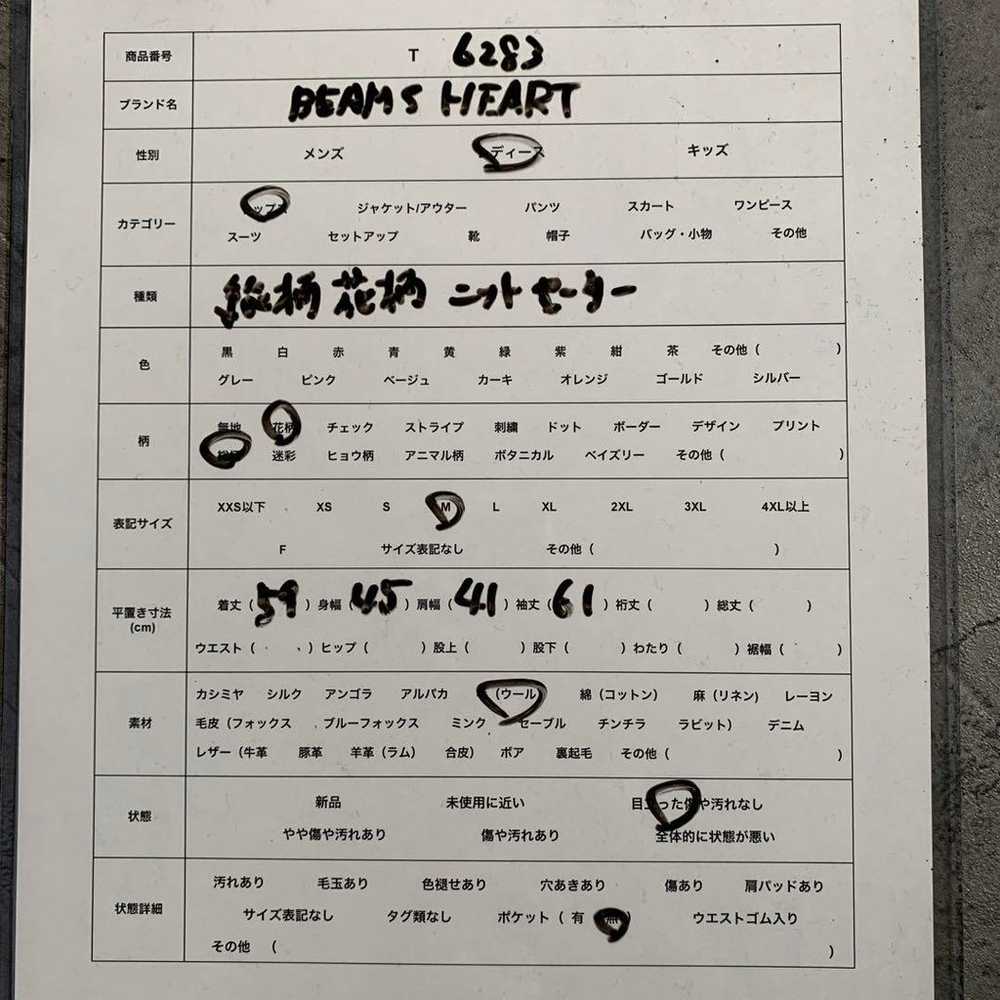 商品番号 T 6283
ブランド名 BEAMS HEART
性別 メンズ ディース キッズ
カテゴリー ップス ジャケット/アウター パンツ スカート ワンピース
スーツ セットアップ 靴 帽子 バッグ・小物 その他
種類 総柄 花柄 ニット セーター
色 黒 白 赤 青 黄 緑 紫 紺 茶 その他 ( )
グレー ピンク ベージュ カーキ オレンジ ゴールド シルバー
柄 無地 花柄 チェック ストライプ 刺繍 ドット ボーダー デザイン プリント
総柄 迷彩 ヒョウ柄 アニマル柄 ボタニカル ペイズリー その他 ( )
表記サイズ XXS以下 XS S M L XL 2XL 3XL 4XL以上
F サイズ表記なし その他 ( )
平置き寸法 着丈 ( 59 ) 身幅 ( 45 ) 肩幅 ( 41 ) 袖丈 ( 61 ) 裄丈 ( ) 総丈 ( )
(cm)
ウエスト ( ) ヒップ ( ) 股上 ( ) 股下 ( ) わたり ( ) 裾幅 ( )
素材 カシミヤ シルク アンゴラ アルパカ (ウール) 綿 (コットン) 麻 (リネン) レーヨン
毛皮 (フォックス ブルーフォックス ミンク セーブル チンチラ ラビット) デニム
レザー (牛革 豚革 羊革 (ラム) 合皮) ボア 裏起毛 その他 ( )
状態 新品 未使用に近い 目立った傷や汚れなし
やや傷や汚れあり 傷や汚れあり 全体的に状態が悪い
状態詳細 汚れあり 毛玉あり 色褪せあり 穴あきあり 傷あり 肩パッドあり
サイズ表記なし タグ類なし ポケット ( 有 無 ) ウエストゴム入り
その他 ( )